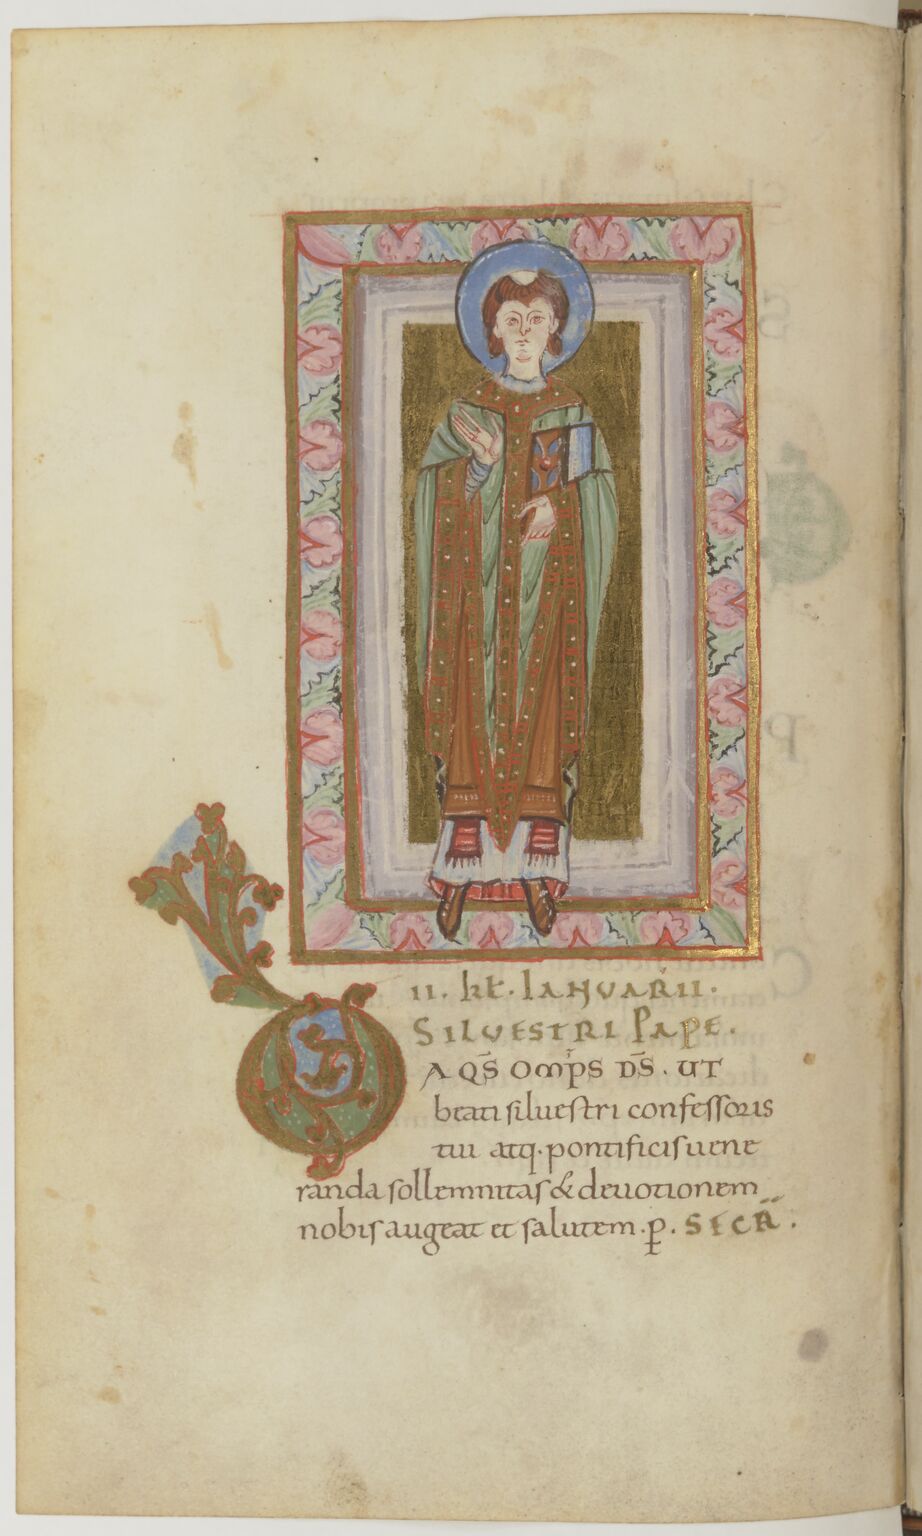 II. kł. IANUARII.
SILVESTRI PAPE.
DA QS̄ OMP̄S D̄S. UT
beati siluestri confessoris
tui atq. pontificis uene
randa sollemnitas & deuotionem
nobis augeat et salutem. p̱. SECR̄.